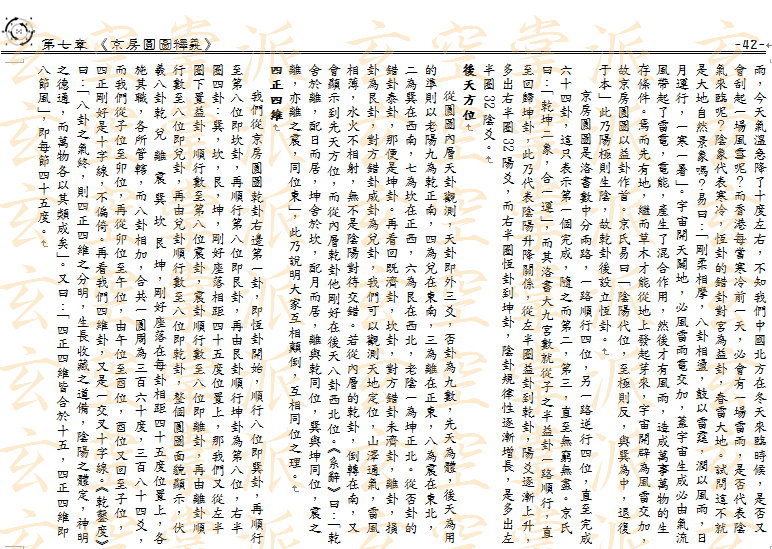 第七章 《京房圓圖釋義》
-42-
雨，今天氣溫急降了十度左右，不知我們中國北方在冬天來臨時候，是否又
會刮起一場風雪呢？而香港每當寒冷前一天，必會有一場雷雨，是否代表陰
氣來臨呢？陰象代表寒冷，恆卦的錯卦對宮為益卦，春雷大地。試問這不就
是大地自然景象嗎？易曰：「剛柔相摩，八卦相盪，鼓以雷霆，潤以風雨，日
月運行，一寒一暑」。宇宙開天闢地，必風雷雨電交加，蓋宇宙生成必由氣流
風帶起了雷電，電能，產生了混合作用，然後才有風雨，造成萬事萬物的生
存條件。焉而先有地，繼而草木才能從地上發起芽來，宇宙開辟為風雷交加，
故京房圓圖以益卦作首。京氏易曰「陰陽代位，至極則反，與巽為中，退復
于本」此乃陽極則生陰，故乾卦後設立恆卦。
京房圓圖是洛書數中分兩路，一路順行四位，另一路逆行四位，直至完成
六十四卦，這只表示第一個完成，隨之而第二，第三，直至無窮無盡。京氏
曰：「乾坤二象，合一運」，而其洛書大九宮數就從子之半益卦一路順行，直
至回歸坤卦，此乃代表陰陽升降關係，從左半圈益卦到乾卦，陽爻逐漸上升，
多出右半圈 32 陽爻，而右半圈恆卦到坤卦，陰卦規律性逐漸增長，是多出左
半圈 32 陰爻。
後天方位
從圓圖內層天卦觀測，天卦即外三爻，否卦為九數，先天為體，後天為用
的準則以老陽九為乾正南，四為兌在東南，三為離在正東，八為震在東北，
二為巽在西南，七為坎在正西，六為艮在西北，老陰一為坤正北。從否卦的
錯卦泰卦，那便是坤卦。再看回既濟卦，坎卦，對方錯卦未濟卦，離卦，損
卦為艮卦，對方錯卦咸卦為兌卦，我們可以觀測天地定位，山澤通氣，雷風
相薄，水火不相射，無不是陰陽對待交錯。若從內層的乾卦，倒轉在南，又
會顯示到先天方位，而從內層乾卦他剛好在後天八卦西北位。《系辭》曰：「乾
舍於離，配日而居，坤舍於坎，配月而居，離與乾同位，巽與坤同位，震之
離，亦離之震，同位東」，此乃說明大家互相顛倒，互相同位之理。
四正四維
我們從京房圓圖乾卦右邊第一卦，即恆卦開始，順行八位即巽卦，再順行
至第八位即坎卦，再順行第八位即艮卦，再由艮卦順行坤卦為第八位，右半
圈四卦：巽，坎，艮，坤，剛好座落相距四十五度位置上，那我們又從左半
圈下置益卦，順行數至第八位震卦，震卦順行數至八位即離卦，再由離卦順
行數至八位即兌卦，再由兌卦順行數至八位即乾卦，整個圓圖面貌顯示，伏
羲八卦乾 兌 離 震 巽 坎 艮 坤，剛好座落在每卦相距四十五度位置上，各
施其職，各所管轄，而八卦相加，合共一圓周為三百六十度，三百八十四爻，
而我們從子位至卯位，再從卯位至午位，由午位至酉位，酉位又回至子位，
四正剛好是十字線，不偏倚。再看我們四維卦，又是一交叉十字線。《乾鑿度》
曰：「八卦之氣終，則四正四維之分明，生長收藏之道備，陰陽之體定，神明
之德通，而萬物各以其類成矣」。又曰：「四正四維皆合於十五，四正四維即
八節風」，即每節四十五度。